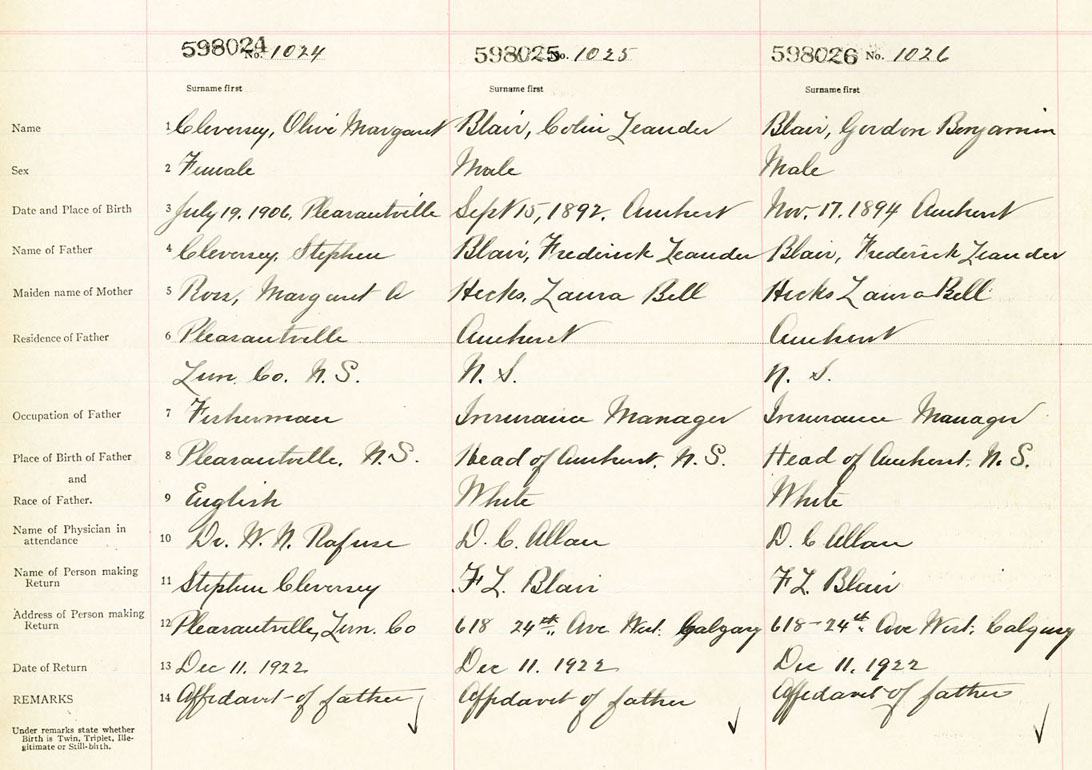 598024 No. 1024 598025 No. 1025 598026 No. 1026
Surname first Surname first Surname first
Name 1 Cleversey, Olive Margaret Blair, Colin Leander Blair, Gordon Benjamin
Sex 2 Female Male Male
Date and Place of Birth 3 July 19, 1906, Pleasantville Sept 15, 1892. Amherst Nov. 17. 1894 Amherst
Name of Father 4 Cleversey, Stephen Blair, Frederick Leander Blair, Frederick Leander
Maiden name of Mother 5 Ross, Margaret A Hicks, Laura Bell Hicks Laura Bell
Residence of Father 6 Pleasantville Amherst Amherst
Lun. Co. N.S. N. S. N. S.
Occupation of Father 7 Fisherman Insurance Manager Insurance Manager
Place of Birth of Father 8 Pleasantville, N.S. Head of Amherst, N.S. Head of Amherst, N.S.
and
Race of Father. 9 English White White
Name of Physician in
attendance 10 Dr. W. N. Rafuse D. C. Allan D. C Allan
Name of Person making
Return 11 Stephen Cleversey F L. Blair F L. Blair
Address of Person making
Return 12 Pleasantville, Lun. Co 618 24th. Ave West. Calgary 618-24th. Ave West, Calgary
Date of Return 13 Dec 11. 1922 Dec 11. 1922 Dec 11. 1922
REMARKS 14 Affidavit of father Affidavit of father Affidavit of father
Under remarks state whether
Birth is Twin, Triplet, Ille-
gitimate or Still-birth.